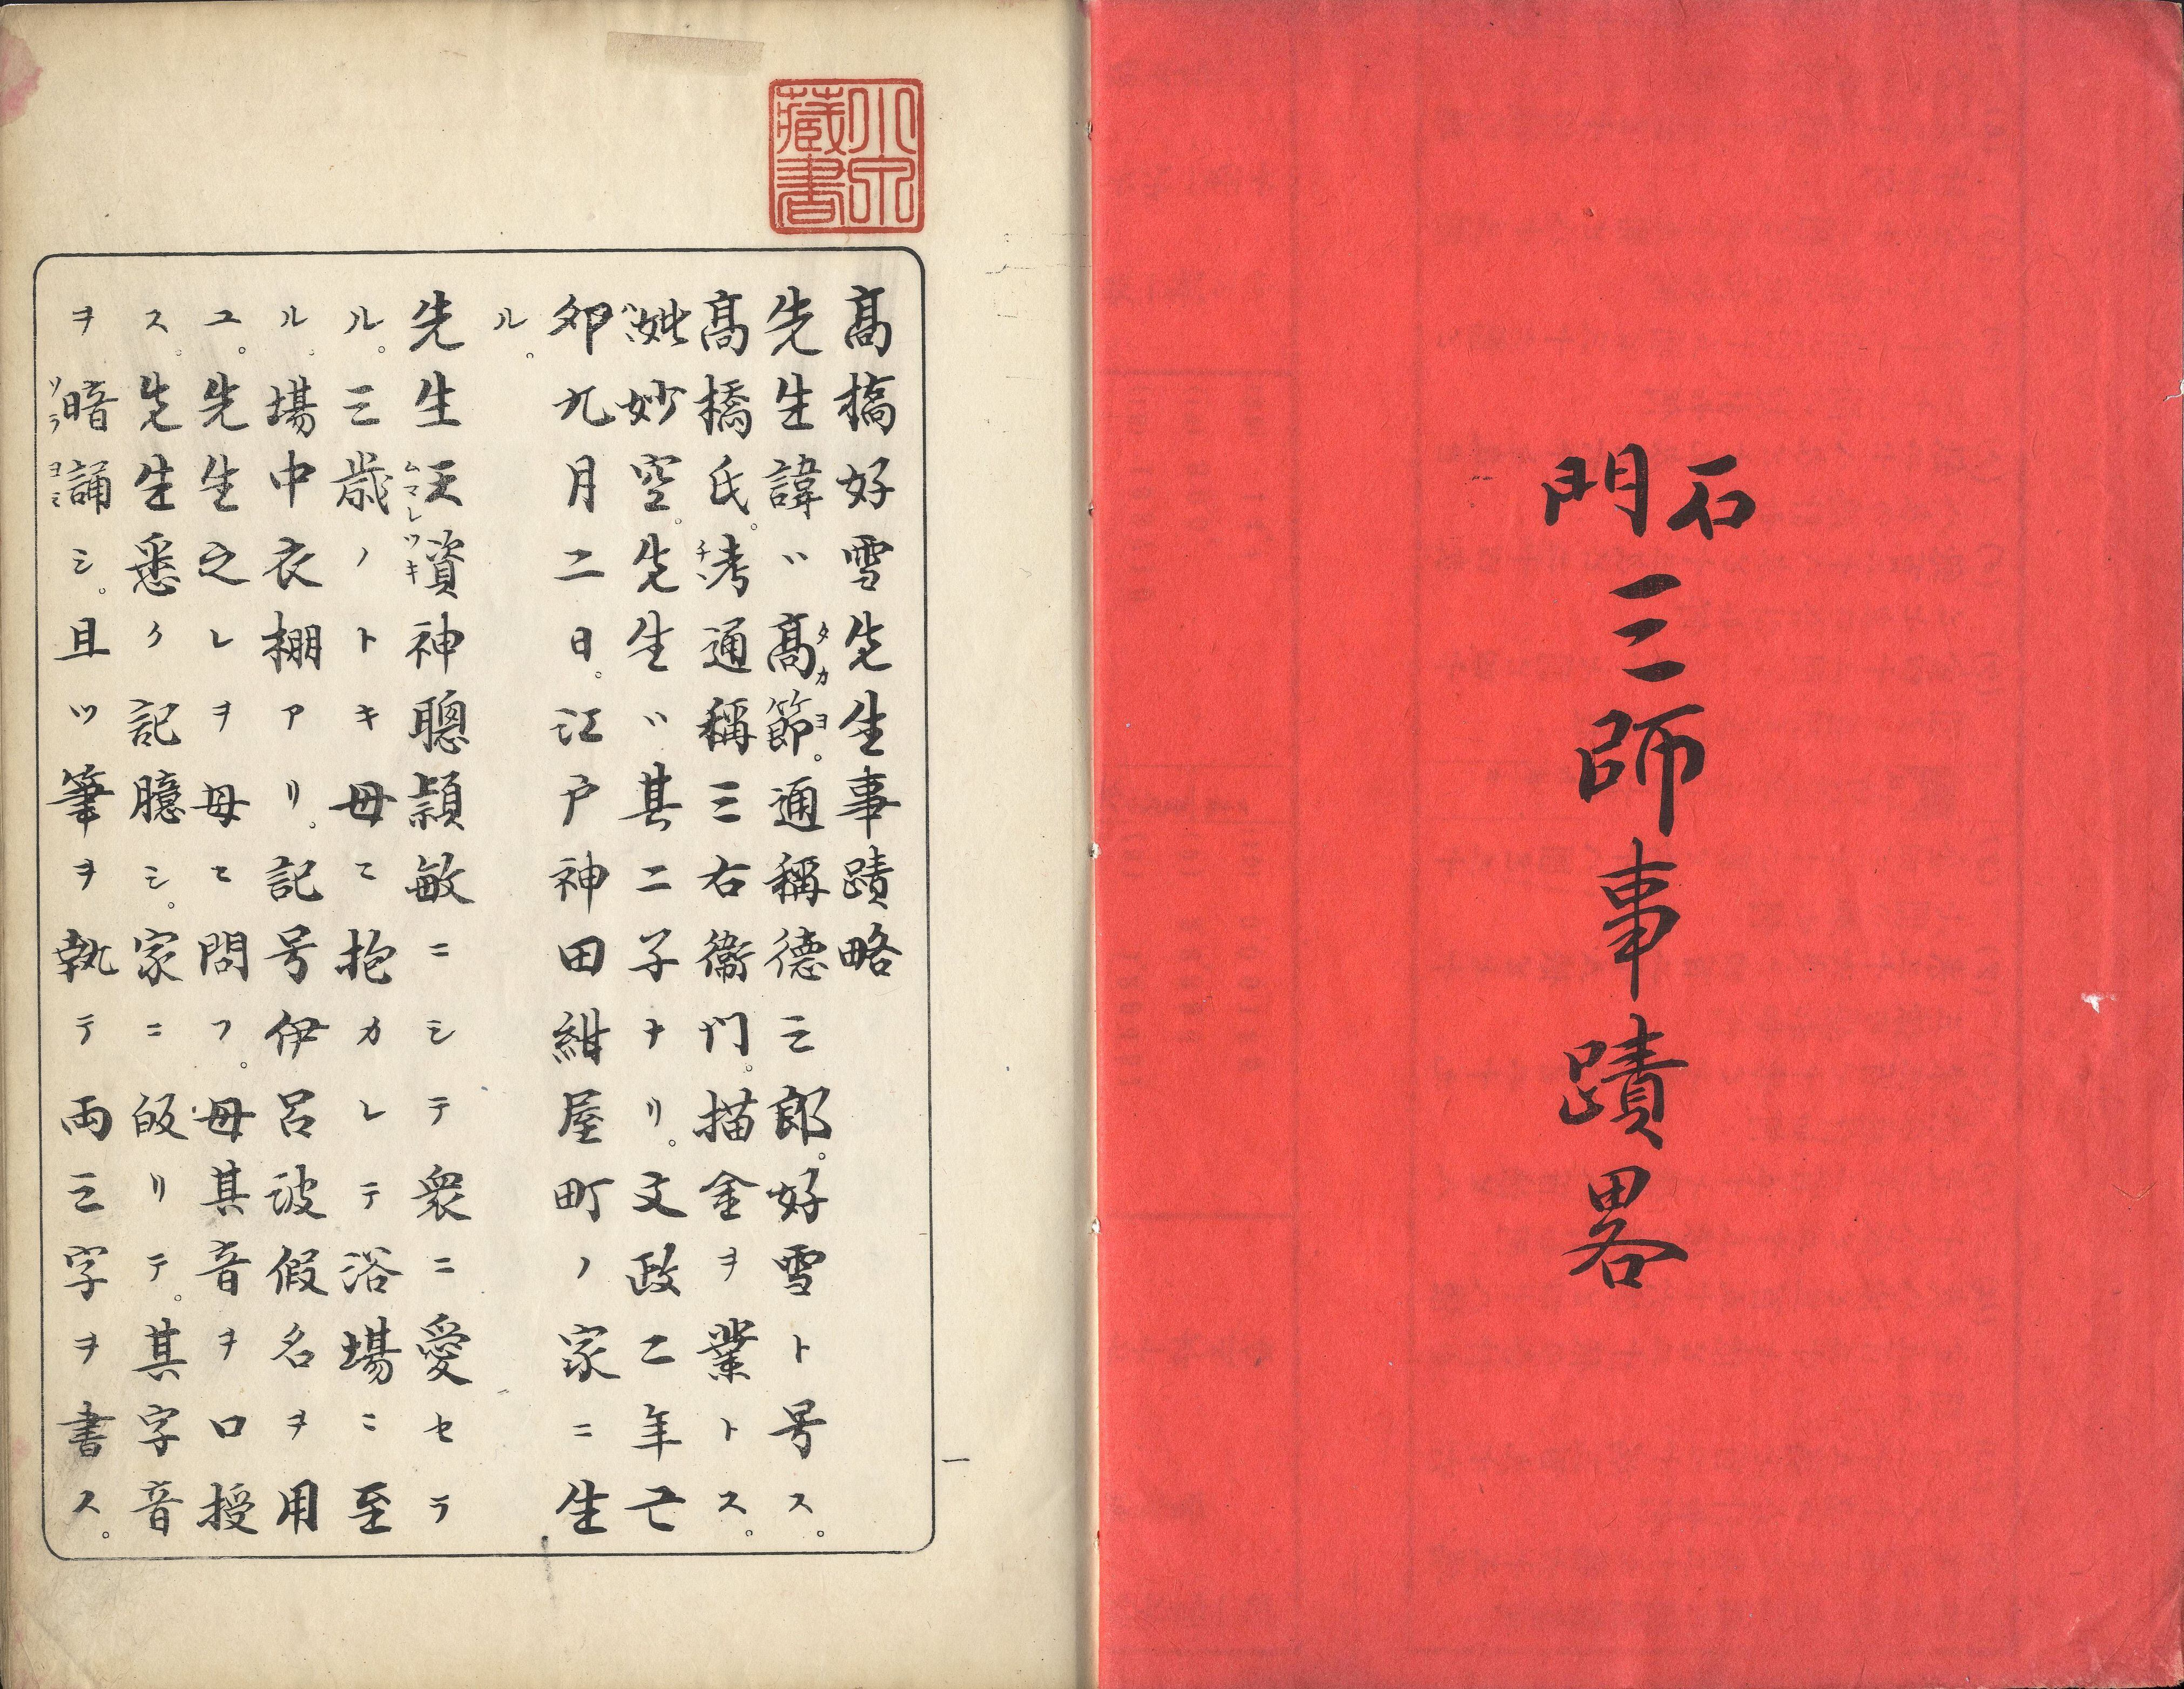 石門
三師事蹟畧
小泉藏書
高槗好雪先生事蹟略
先生諱ハ高節。通稱德三郎。好雪ト号ス。
タカヨ
高橋氏。考通稱三右衞門。描金ヲ業トス。
チヽ
妣妙空。先生ハ其二子ナリ。文政二年己
ハヽ
卯九月二日。江戸神田紺屋町ノ家ニ生
ル。
先生天資神聰穎敏ニシテ衆ニ愛セラ
ムマレツキ
ル。三歳ノトキ母ニ抱カレテ浴場ニ至
ル。場中衣棚アリ。記号伊呂波假名ヲ用
ユ。先生之レヲ母ニ問フ。母其音ヲ口授
ス。先生悉ク記臆シ。家ニ皈リテ。其字音
ヲ暗誦シ。且ツ筆ヲ執テ両三字ヲ書ス。
ソラ ヨミ
一